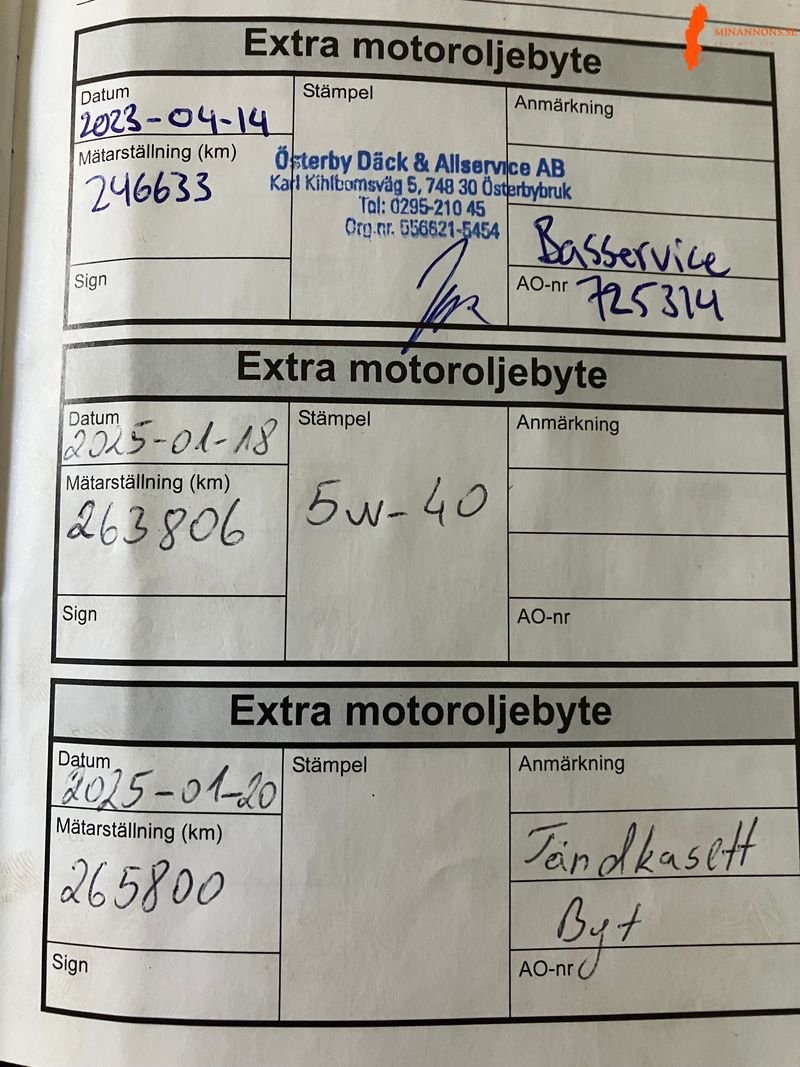 MINANNONS.SE
Extra motoroljebyte
Datum
2023-04-14
Stämpel
Anmärkning
Mätarställning (km)
246633
Österby Däck & Allservice AB
Karl Kihlbomsväg 5, 748 30 Österbybruk
Tel: 0295-210 45
Org.nr. 556621-5454
Basservice
Sign
AO-nr 725314
Extra motoroljebyte
Datum
2025-01-18
Stämpel
Anmärkning
Mätarställning (km)
263806
5w-40
Sign
AO-nr
Extra motoroljebyte
Datum
2025-01-20
Stämpel
Anmärkning
Mätarställning (km)
265800
Tändkasett
Byt
Sign
AO-nr